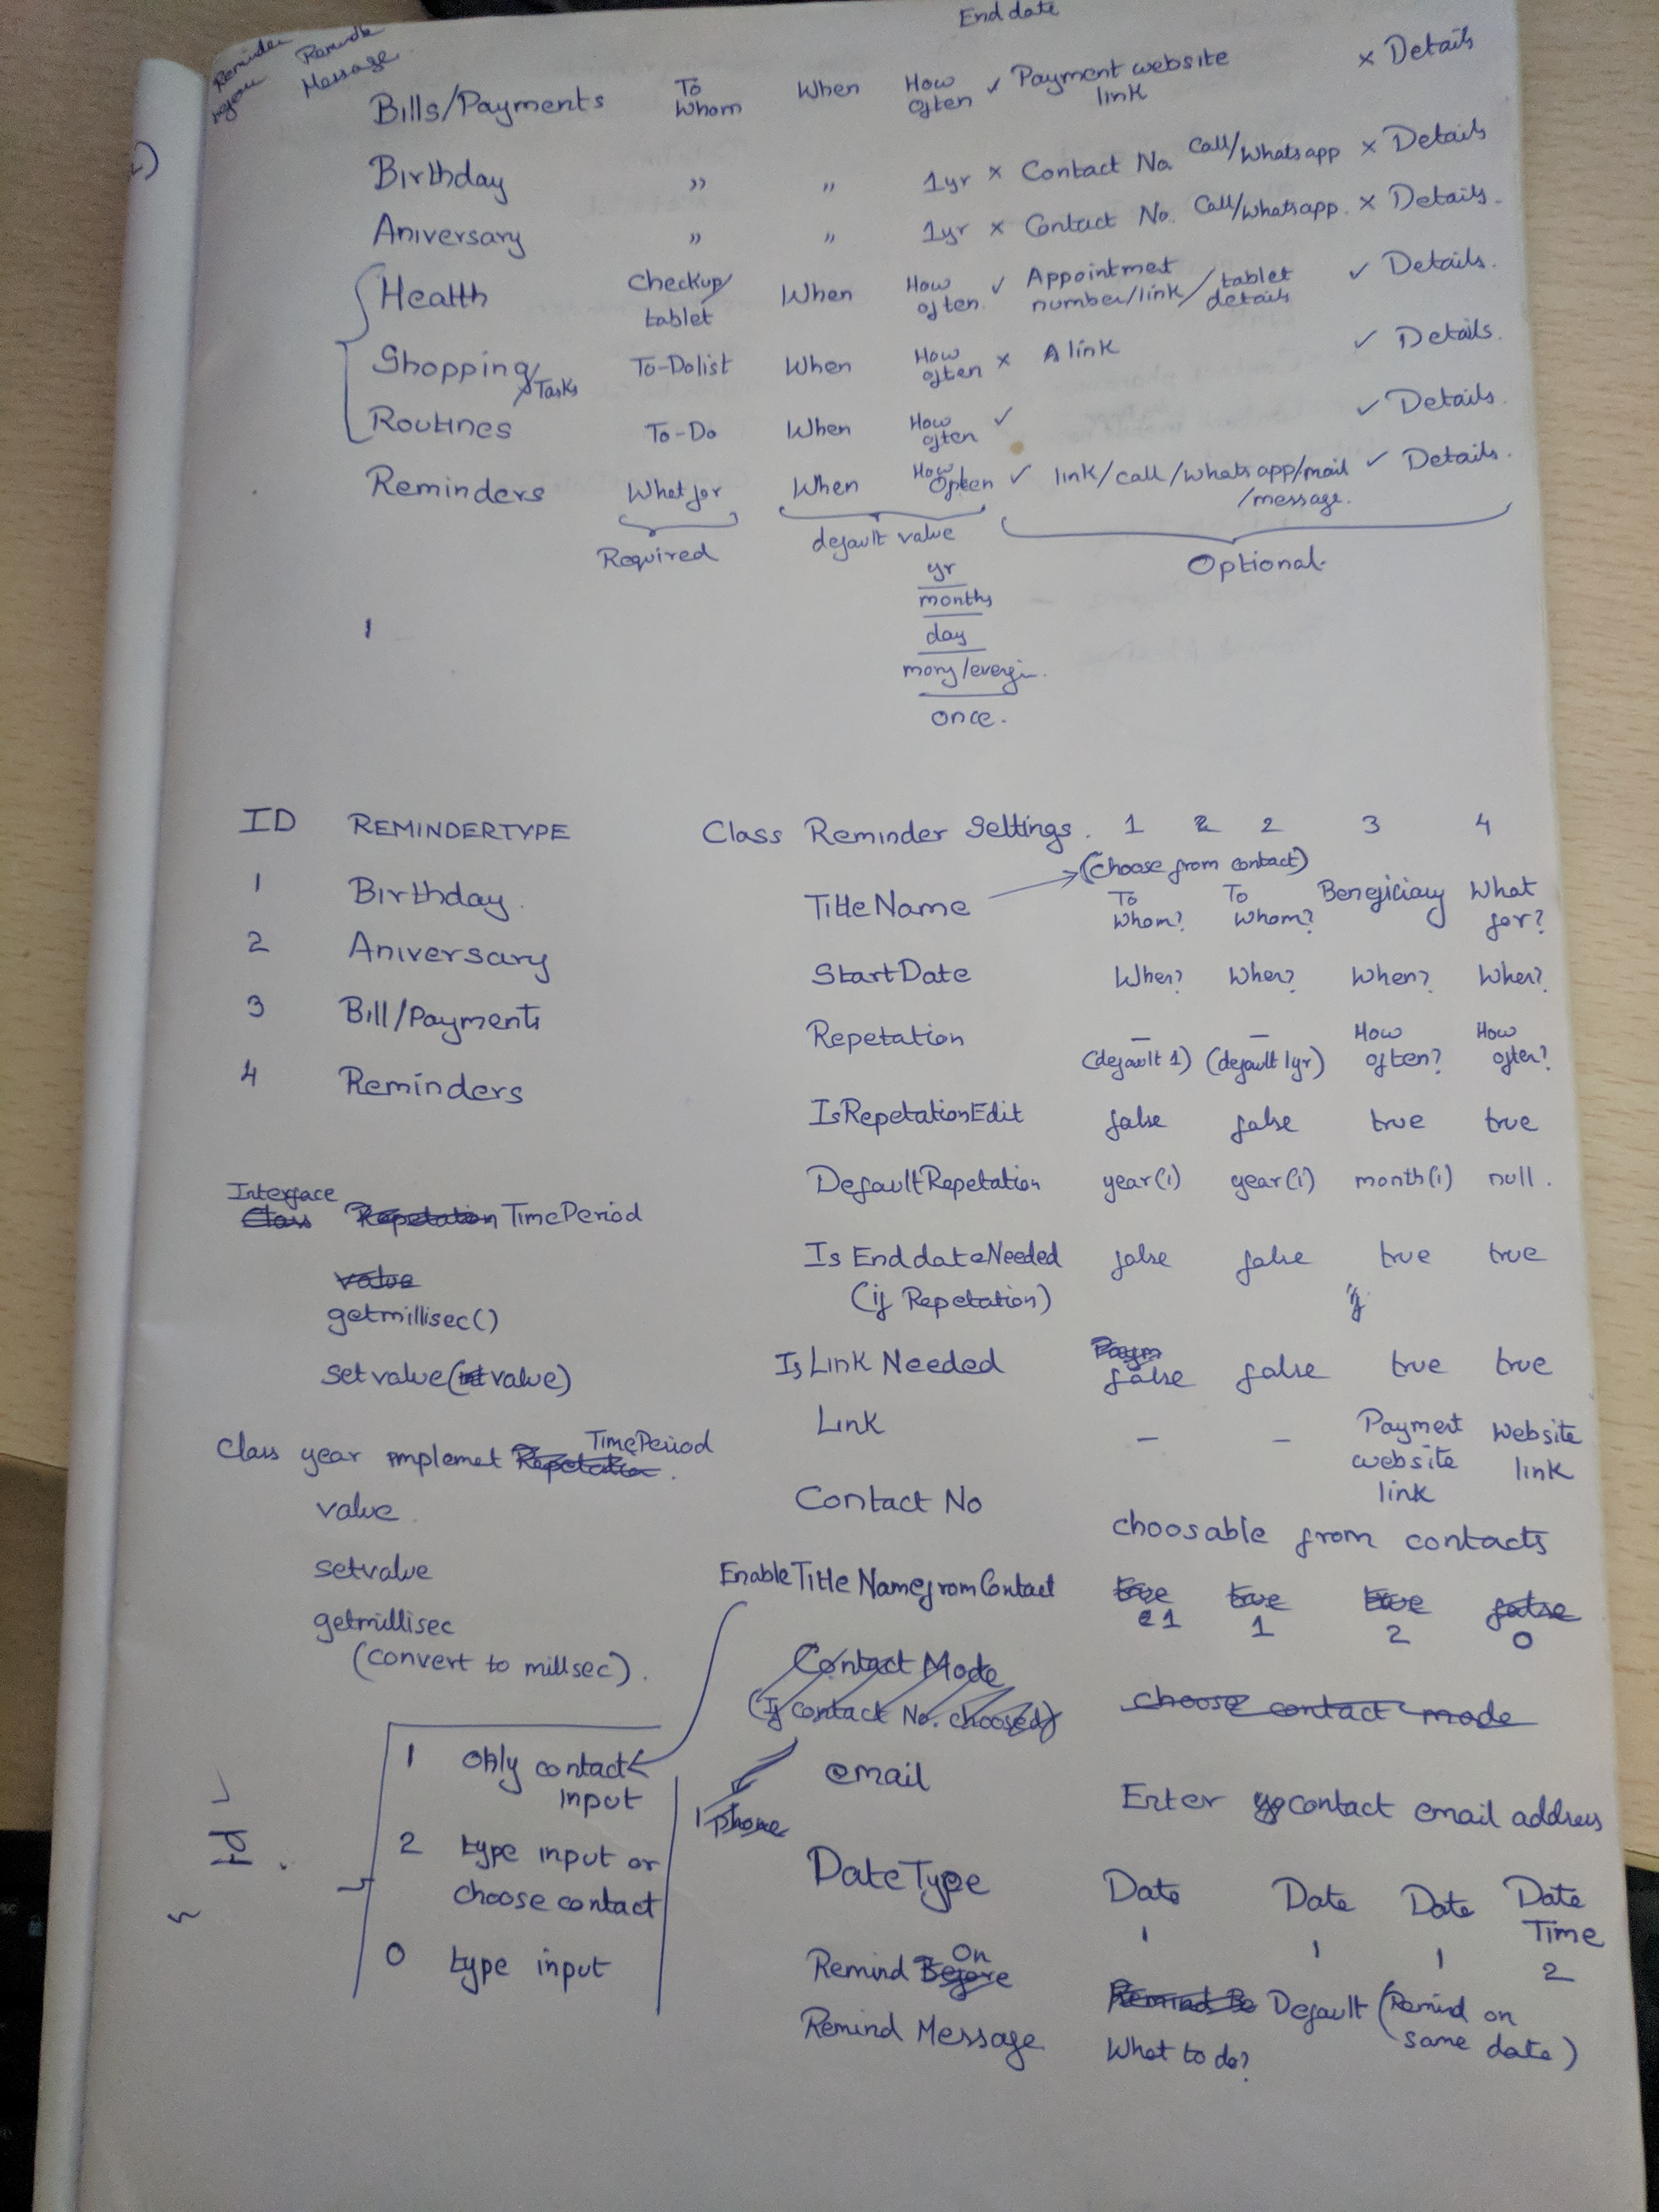 End date
Reminder Remind
Message
Bills/Payments To Whom When How often ✓ Payment website link × Details
Birthday ,, ,, 1yr × Contact No. Call/Whatsapp × Details
Aniversary ,, ,, 1yr × Contact No. Call/Whatsapp. × Details.
Health Checkup/tablet When How often. ✓ Appointmet number/link/tablet details ✓ Details.
Shopping/Tasks To-Dolist When How often × A link ✓ Details.
Routines To-Do When How often ✓ ✓ Details.
Reminders What for When How Opten ✓ link/call/whatsapp/mail/message. ✓ Details.
Required default value Optional.
yr
months
day
once.
ID REMINDERTYPE
1 Birthday.
2 Aniversary
3 Bill/Payments
4 Reminders
Interface
Class Repetation TimePeriod
value
getmillisec()
setvalue(int value)
Class year implemet TimePeriod Repetation.
value
setvalue
getmillisec
(convert to millsec).
1 only contact input
2 type input or choose contact
0 type input
Id
Class Reminder Settings. 1 2 2 3 4
(Choose from contact)
TitleName To Whom? To Whom? Beneficiary What for?
StartDate When? When? When? When?
Repetation – – How often? How often?
(default 1) (default 1yr)
IsRepetationEdit false false true true
DefaultRepetation year(1) year(1) month(1) null.
Is EnddateNeeded false false true true
(if Repetation) if
Is Link Needed Paym false false true true
Link – – Payment website link Website link
Contact No choosable from contacts
EnableTitleNamefromContact true true true false
1 1 2 0
Contact Mode
(If contact No. choosed) choose contact mode
1 phone
email Enter contact email address
DateType Date Date Date Date Time
1 1 1 2
Remind Before On Remind Be Default (Remind on same date)
Remind Message What to do?